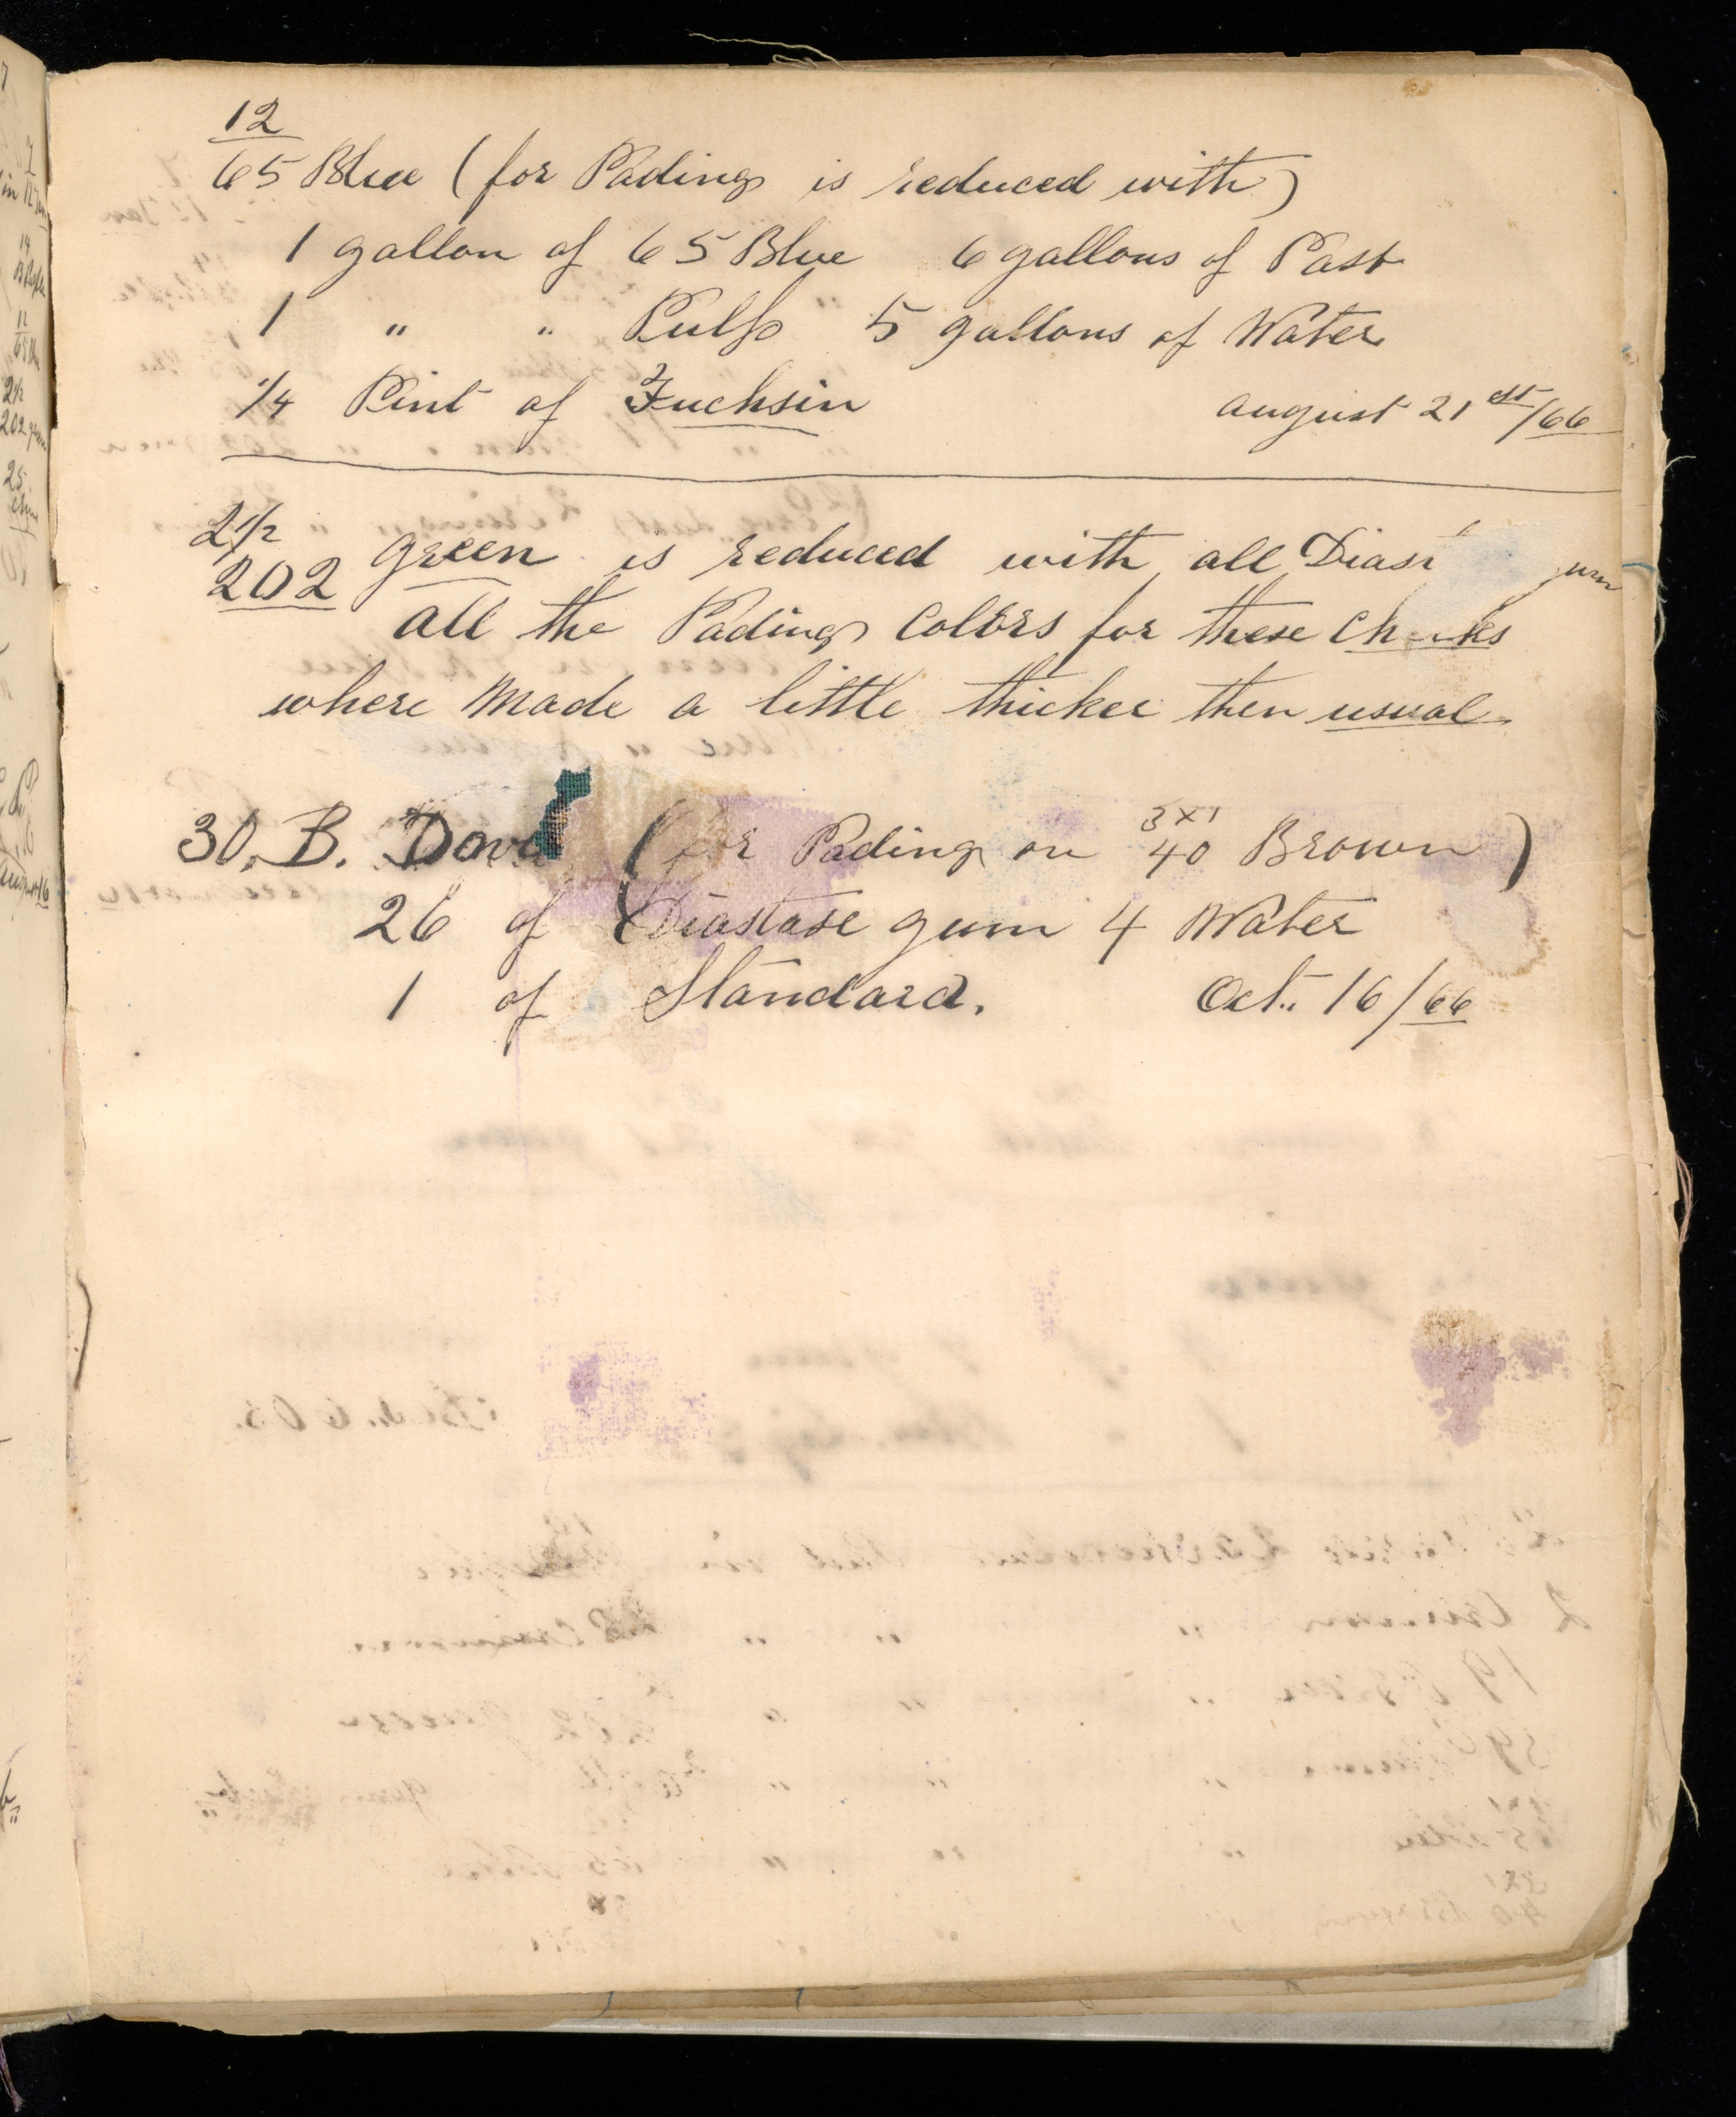 12
65 Blue (for Pading is reduced with)
1 gallon of 65 Blue 6 gallons of Past
1 " " Pulp 5 gallons of Water
1/4 Pint of Fuchsin august 21 st/66
2 1/2
202 green is reduced with all Dias gum
all the Pading Colors for these
where Made a little thicker then usual.
30. B. (for Pading on 3x1 40 Brown)
26 of Diastase gum 4 Water
1 of Standard. Oct. 16/66